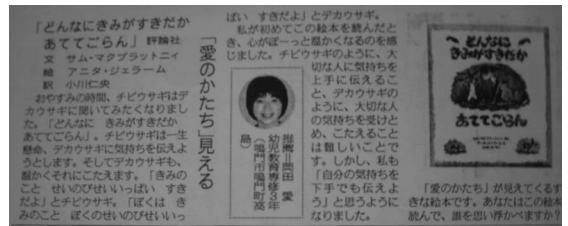 「どんなにきみがすきだか
あててごらん」評論社
文 サム・マクブラットニィ
絵 アニタ・ジェラーム
訳 小川仁央
「愛のかたち」見える
おやすみの時間、チビウサギはデ
カウサギに聞いてみたくなりまし
た。「どんなに きみがすきだか
あててごらん」。チビウサギは一生
懸命、デカウサギに気持ちを伝えよ
うとします。そしてデカウサギも、
温かくそれにこたえます。「きみの
こと せいのびせいいっぱい すき
だよ」とチビウサギ。「ぼくは き
みのこと ぼくのせいのびせいいっ
ぱい すきだよ」とデカウサギ。
私が初めてこの絵本を読んだと
き、心がぽーっと温かくなるのを感
じました。チビウサギのように、大
切な人に気持ちを
上手に伝えるこ
と、デカウサギの
ように、大切な人
の気持ちを受けと
め、こたえること
は難しいことで
す。しかし、私も
「自分の気持ちを
下手でも伝えよ
う」と思うように
なりました。
推薦=岡田 愛
幼児教育専修3年
(鳴門市鳴門町高
島)
どんなに
きみがすきだか
あててごらん
「愛のかたち」が見えてくるす
きな絵本です。あなたはこの絵本
読んで、誰を思い浮かべますか?